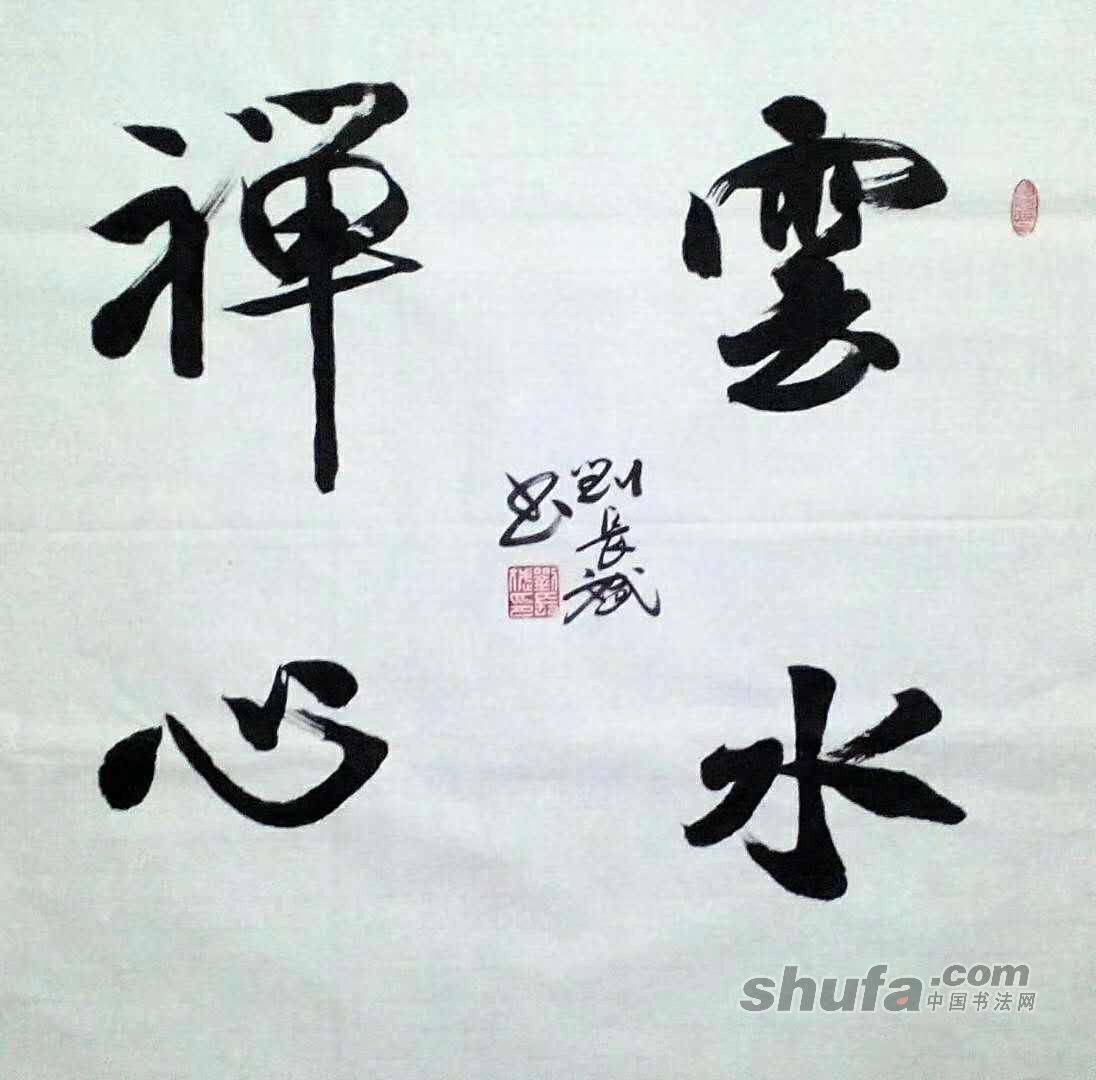 雲水
禪心
劉長斌
书
shufa.com
中国书法网